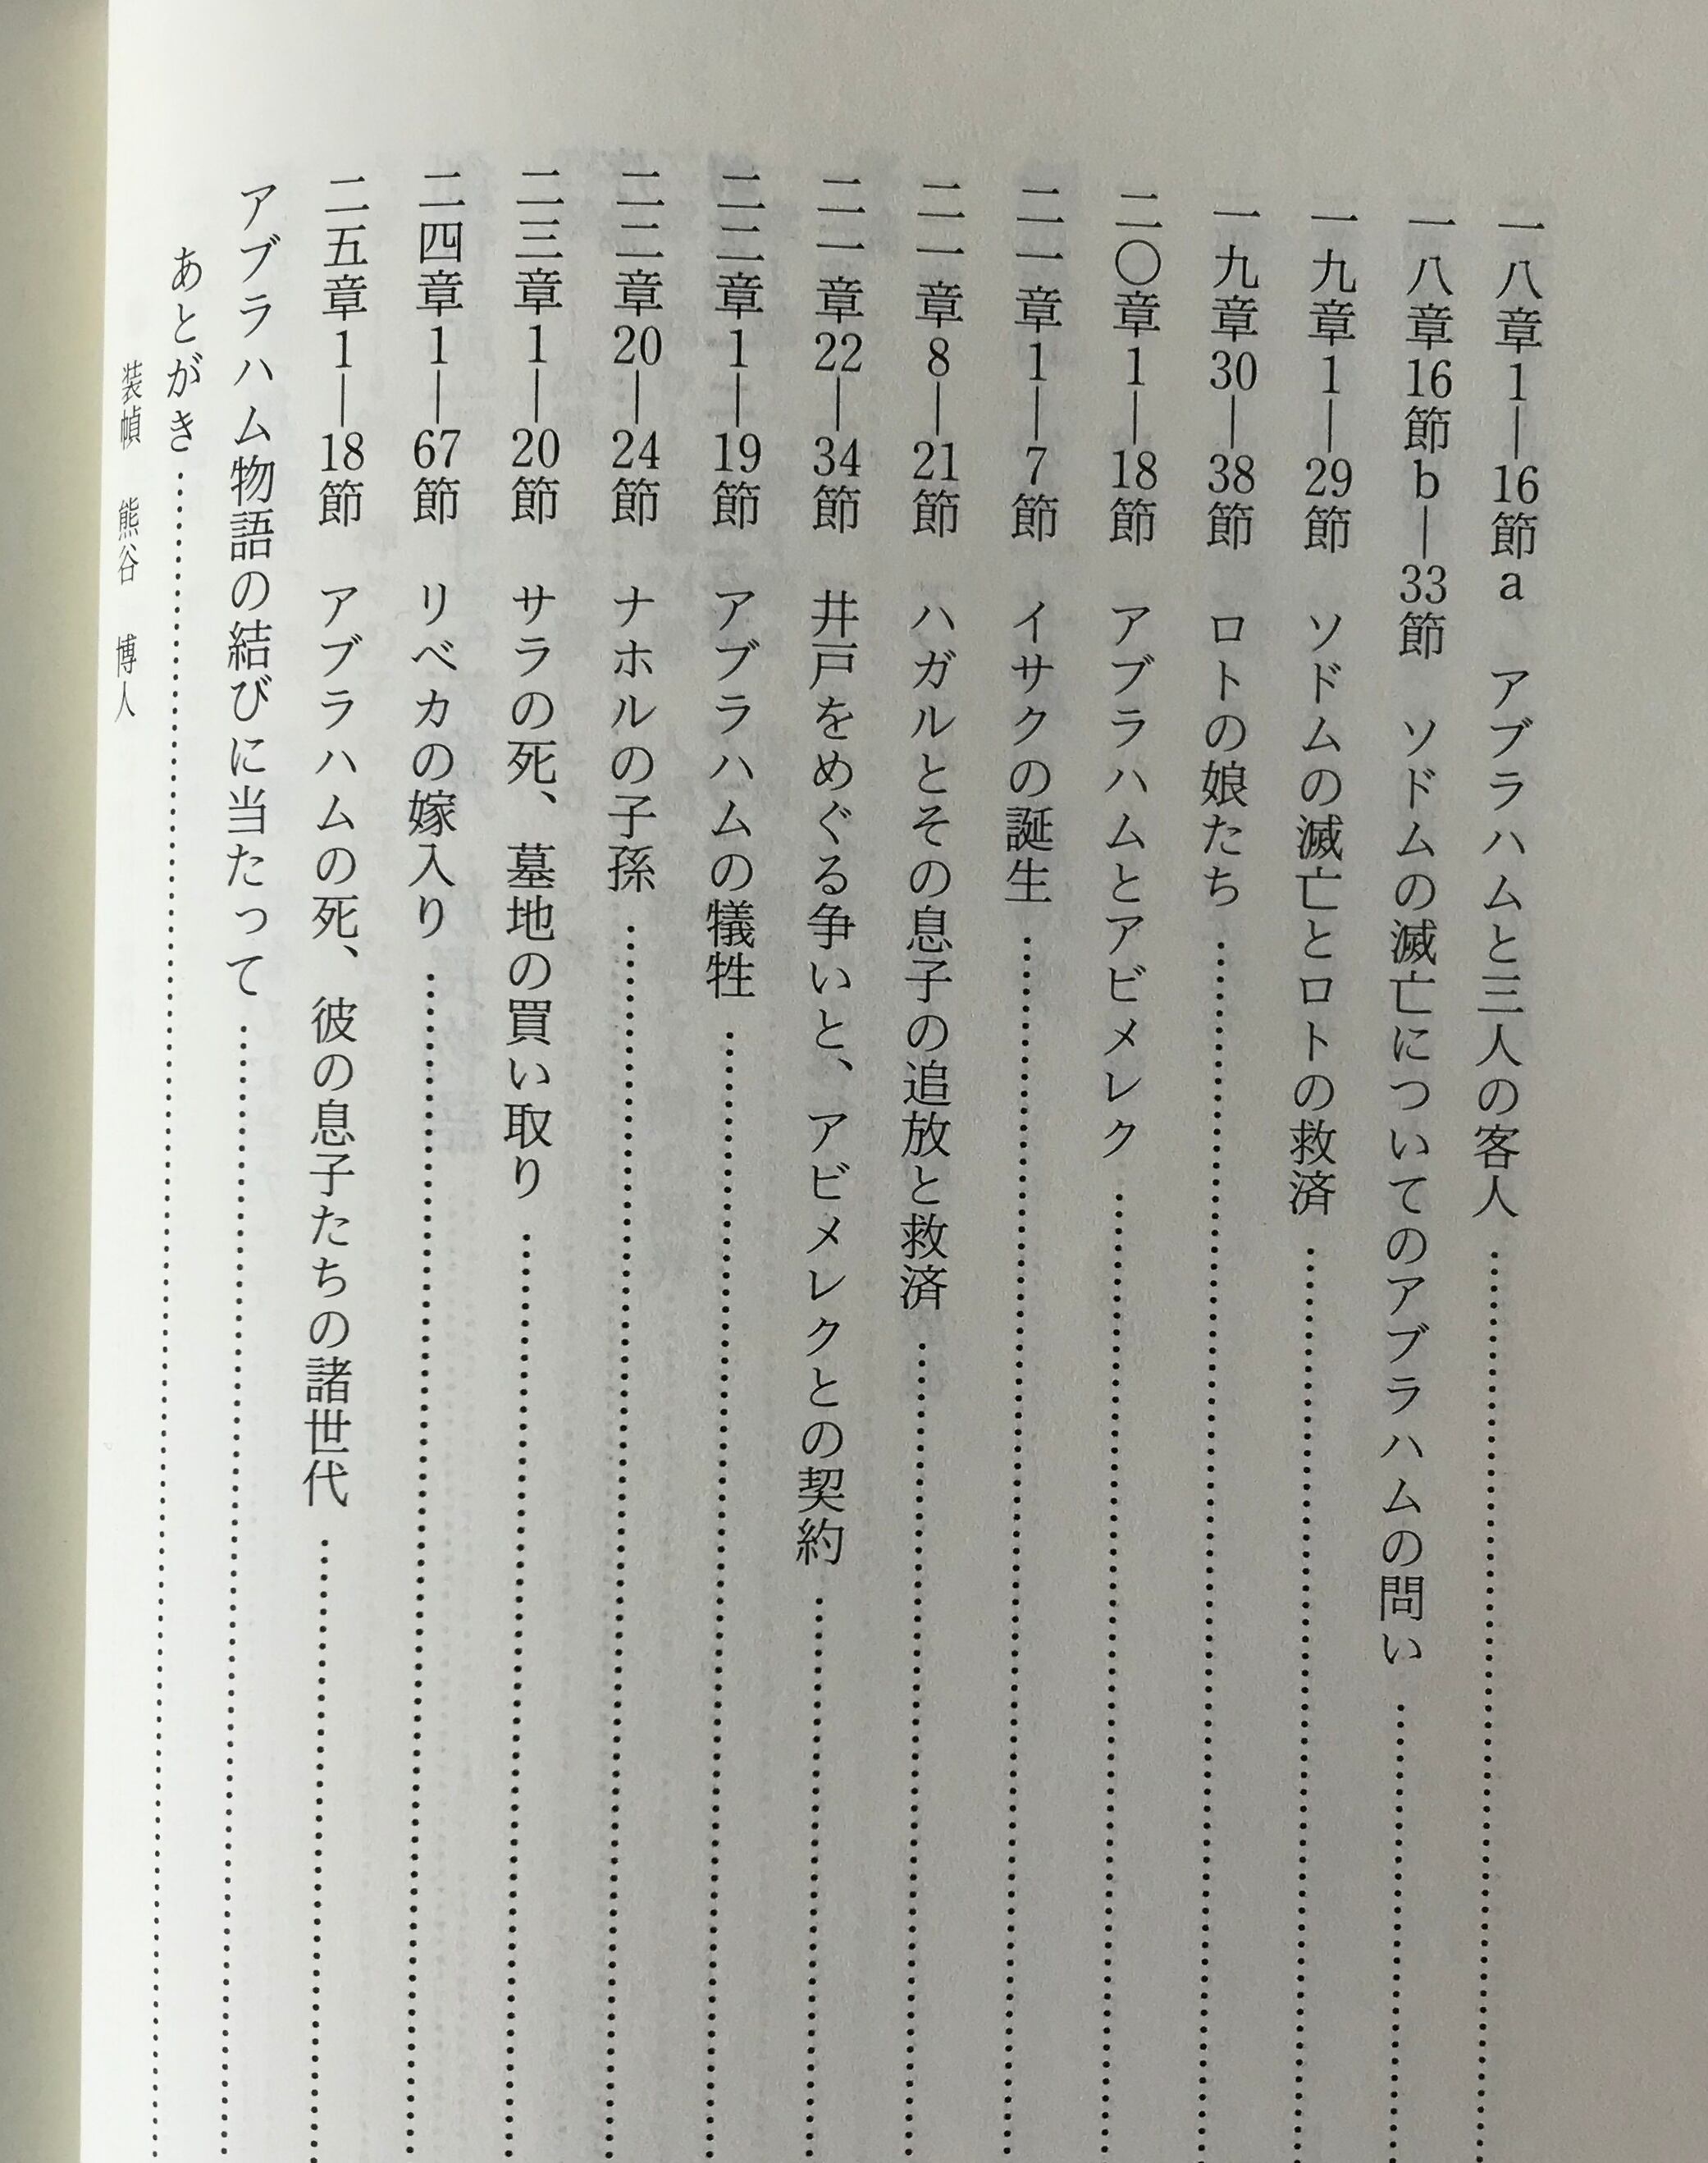 一八章1―16節a　アブラハムと三人の客人……
一八章16節b―33節　ソドムの滅亡についてのアブラハムの問い……
一九章1―29節　ソドムの滅亡とロトの救済……
一九章30―38節　ロトの娘たち……
二〇章1―18節　アブラハムとアビメレク……
二一章1―7節　イサクの誕生……
二一章8―21節　ハガルとその息子の追放と救済……
二一章22―34節　井戸をめぐる争いと、アビメレクとの契約……
二二章1―19節　アブラハムの犠牲……
二二章20―24節　ナホルの子孫……
二三章1―20節　サラの死、墓地の買い取り……
二四章1―67節　リベカの嫁入り……
二五章1―18節　アブラハムの死、彼の息子たちの諸世代……
アブラハム物語の結びに当たって……
あとがき……
装幀　熊谷　博人